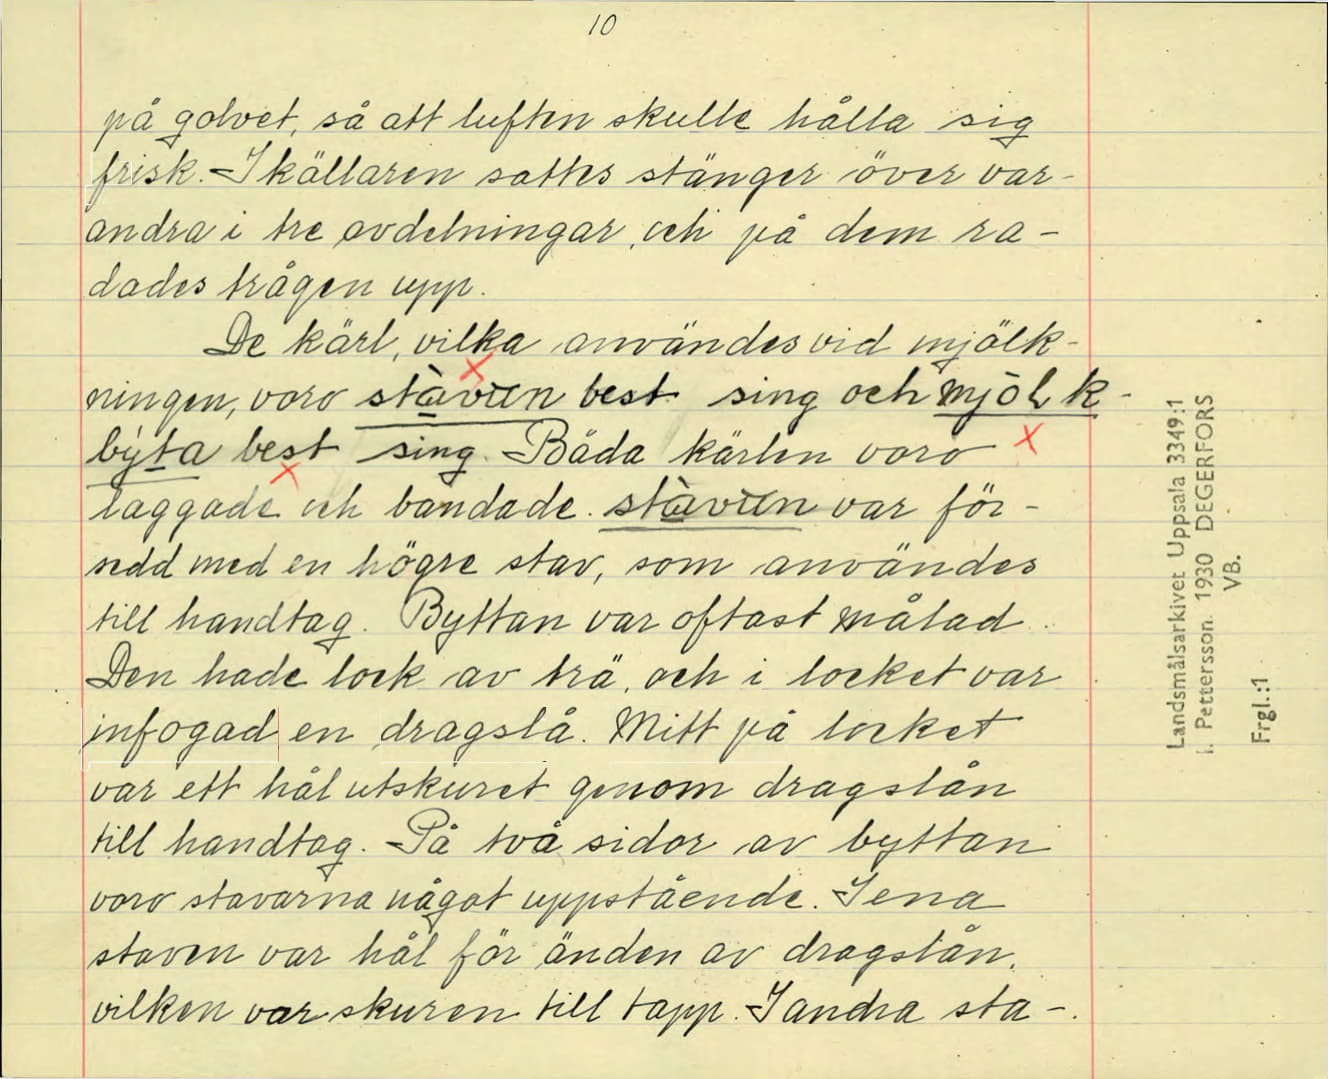 10
på golvet, så att luften skulle hålla sig
frisk. I källaren sattes stänger över var-
andra i tre avdelningar, och på dem ra-
dades trågen upp.
De kärl, vilka användes vid mjölk-
ningen, voro stàvun best sing och mjòlk-
býta best sing. Båda kärlen voro
laggade och bandade. stàvun var för-
sedd med en högre stav, som användes
till handtag. Byttan var oftast målad.
Den hade lock av trä, och i locket var
infogad en dragslå. Mitt på locket
var ett hål utskuret genom dragslån
till handtag. På två sidor av byttan
voro stavarna något uppstående. I ena
staven var hål för änden av dragslån,
vilken var skuren till tapp. I andra sta-
Landsmålsarkivet Uppsala 3349:1
I. Pettersson. 1930 DEGERFORS
VB.
Frgl.:1